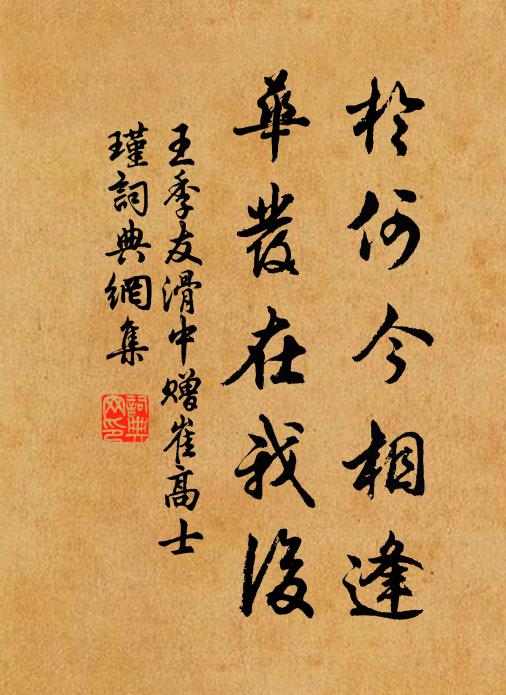 於何今相逢
華發在我後
王季友滑中贈崔高士
瑾詞典網集
詞典網印